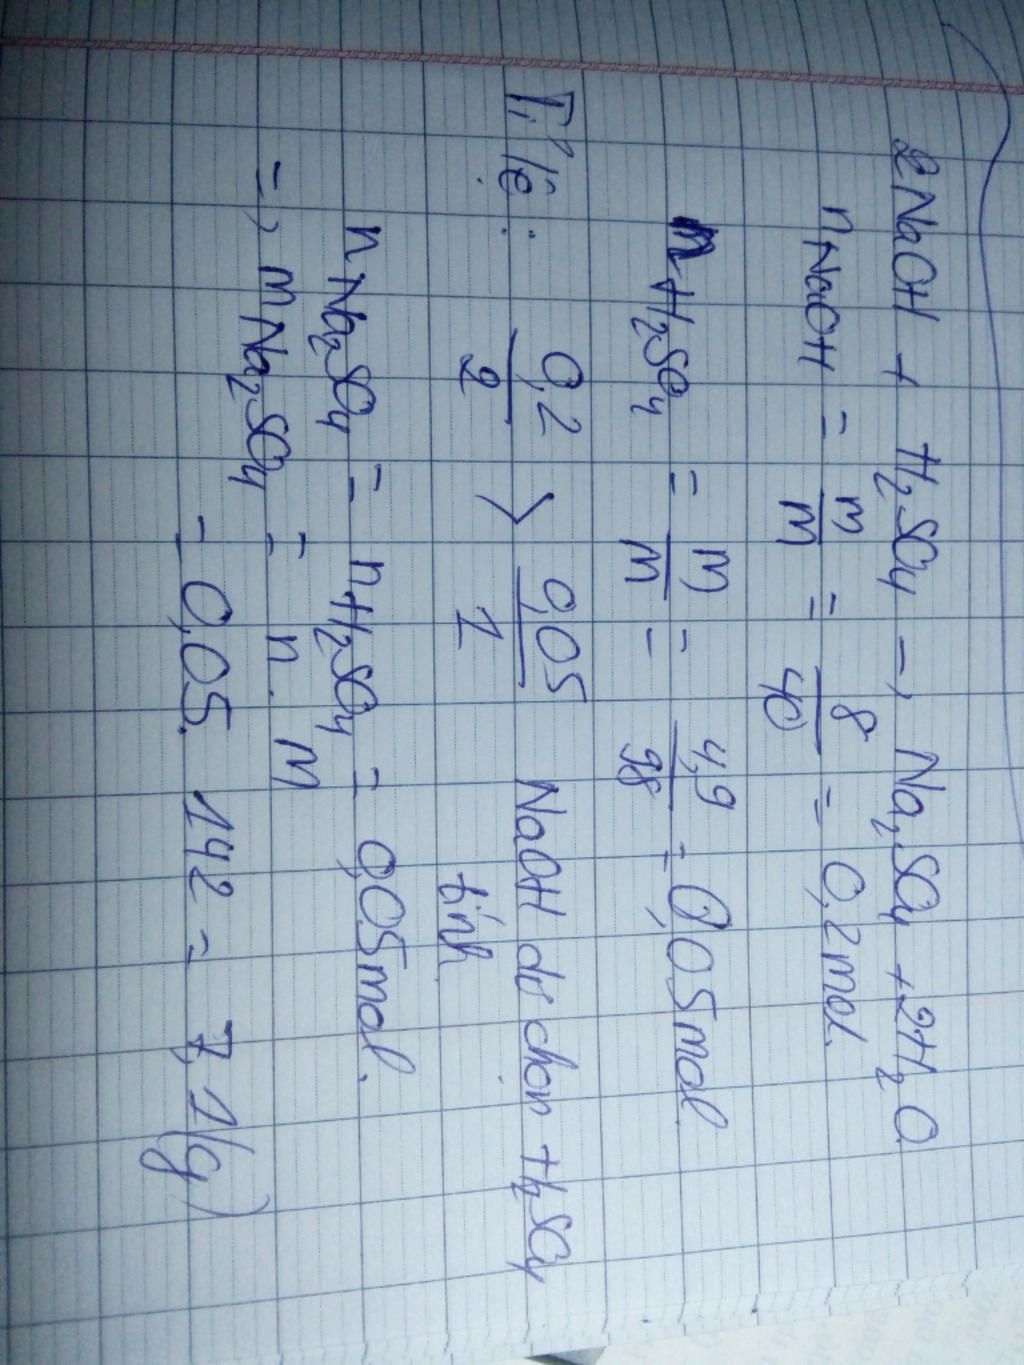 2NaOH + H₂SO₄ → Na₂SO₄ + 2H₂O
nNaOH = m/M = 8/40 = 0,2 mol.
nH₂SO₄ = m/M = 4,9/98 = 0,05 mol
Tỉ lệ: 0,2/2 > 0,05/1 NaOH dư chọn H₂SO₄
tính
nNa₂SO₄ = nH₂SO₄ = 0,05 mol.
=> mNa₂SO₄ = n. M
= 0,05. 142 = 7,1 (g)